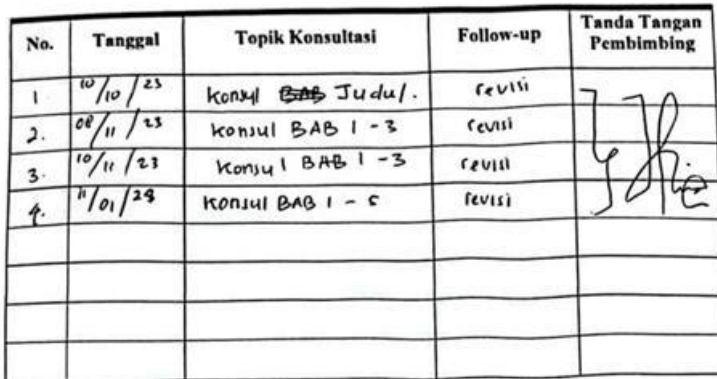 No. Tanggal Topik Konsultasi Follow-up Tanda Tangan Pembimbing
1 10/10/23 Konsul BAB Judul. revisi
2. 08/11/23 Konsul BAB 1-3 revisi
3. 10/11/23 Konsul BAB 1-3 revisi
4. 11/01/28 Konsul BAB 1-5 revisi